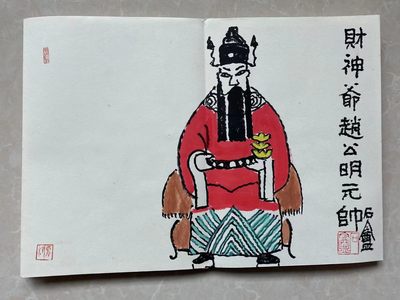 財神爺趙公明元帥